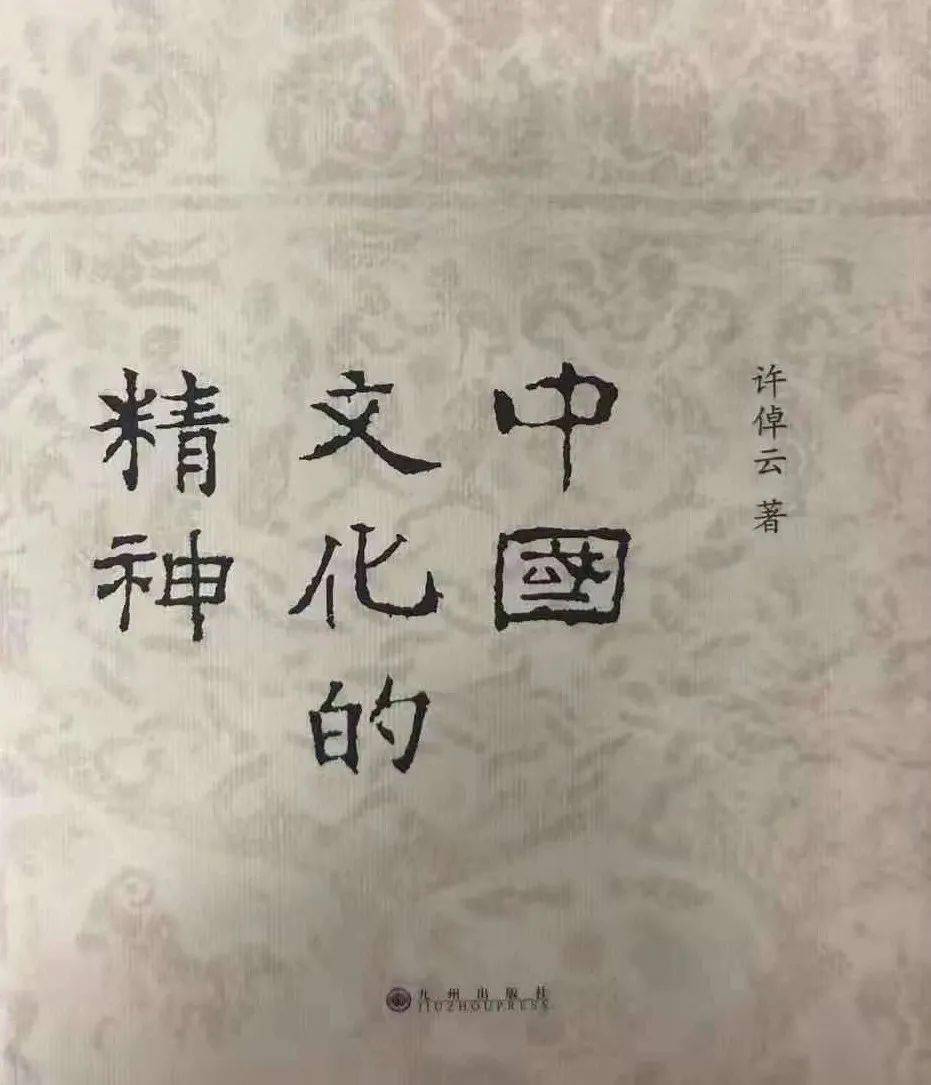 许倬云 著
中國
文化的
精神
九州出版社
JIUZHOUPRESS